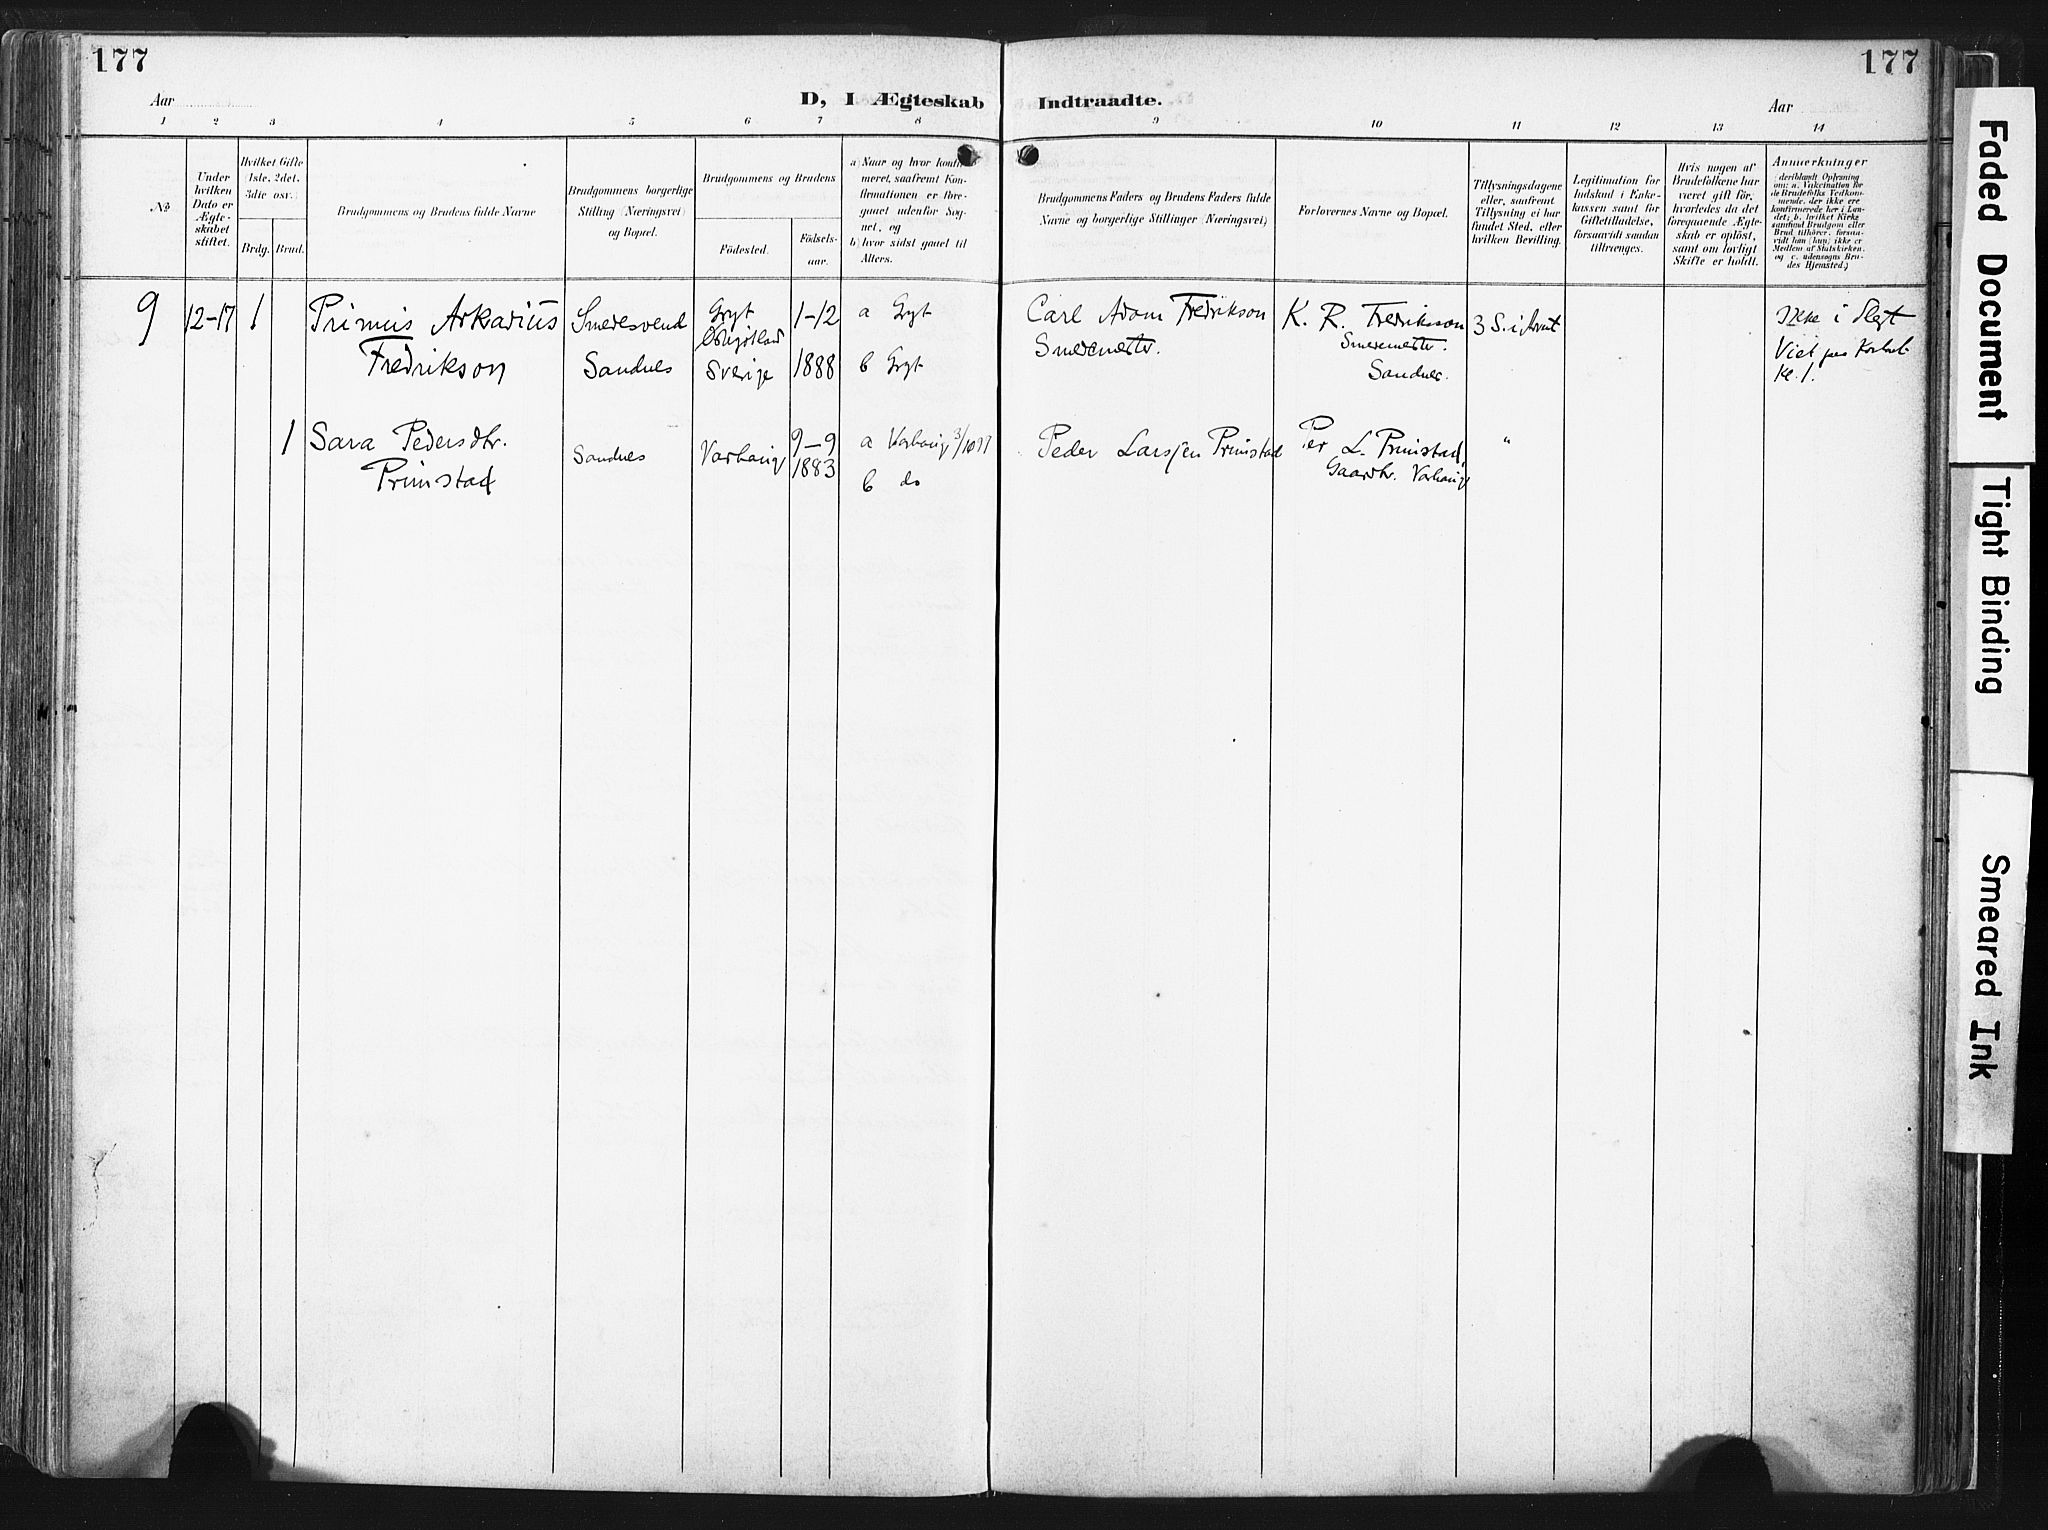 177
177
Aar
D, I Ægteskab
Indtraadte.
Aar
1 2 3 4 5 6 7 8 9 10 11 12 13 14
№
Under
hvilken
Dato er
Ægte-
skabet
stiftet.
Hvilket Gifte
(1ste, 2det,
3die osv.)
Brdg.
Brud.
Brudgommens og Brudens fulde Navne
Brudgommens borgerlige
Stilling (Næringsvei)
og Bopæl.
Brudgommens og Brudens
Fødested.
Fødsels-
aar.
a) Naar og hvor konfir-
meret, saafremt Kon-
firmationen er fore-
gaaet udenfor Sog-
net, og
b) hvor sidst gaaet til
Alters.
Brudgommens Faders og Brudens Faders fulde
Navne og borgerlige Stillinger (Næringsvei)
Forlovernes Navne og Bopæl.
Tillysningsdagene
eller, saafremt
Tillysning ei har
fundet Sted, efter
hvilken Bevilling.
Legitimation for
Indskud i Enke-
kassen samt for
Giftetilladelse,
forsaavidt saadan
tiltrænges.
Hvis nogen af
Brudefolkene har
været gift før,
hvorledes da det
foregaaende Ægte-
skab er opløst,
samt om lovligt
Skifte er holdt.
Anmerkninger
(deriblandt Oplysning
om: a. Vakcination for
de Brudefolks Vedkom-
mende, der ikke ere
konfirmerede her i Lan-
det; b. hvilket Kirke-
samfund Brudgom eller
Brud tilhører, forsaa-
vidt han (hun) ikke er
Medlem af Statskirken,
og c. udensogns Bru-
des Hjemsted.)
9 12-17 1 Primus Arkadius Smedesvend Gryt 1-12 a Gryt Carl Adom Fredrikson K. R. Fredriksson 3 S. i Ikke i Slegt
Smedemester. Smedemester. Viet
Fredrikson Sandnes Sverige 1888 b Gryt Sandnes. Kl. 1.
1 Sara Pedersdtr. Sandnes Varhaug 9-9 a Varhaug Peder Larsen Primstad Per L. Primstad, "
Primstad 1883 b do Gaardbr. Varhaug
Faded Document
Tight Binding
Smeared Ink